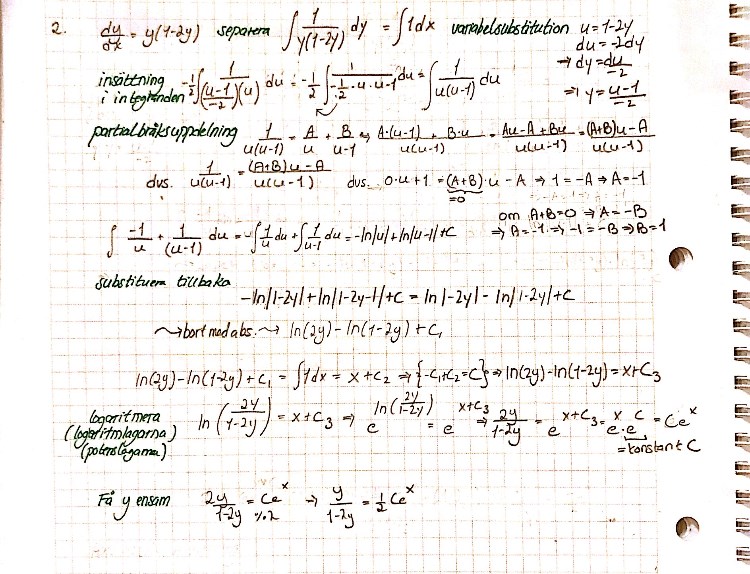 2. dy/dx = y(1-2y) separera ∫ 1/(y(1-2y)) dy = ∫1dx variabelsubstitution u = 1-2y
du = -2dy
→ dy = du/-2
insättning i integranden -1/2 ∫ 1/((u-1)/-2)(u) du = -1/2 ∫ 1/(-1/2 · u · u-1) du = ∫ 1/(u(u-1)) du ⇒ y = (u-1)/-2
partialbråksuppdelning 1/(u(u-1)) = A/u + B/(u-1) ⇒ (A·(u-1) + B·u)/(u(u-1)) = (Au-A+Bu)/(u(u-1)) = ((A+B)u-A)/(u(u-1))
dvs. 1/(u(u-1)) = ((A+B)u-A)/(u(u-1)) dvs. 0·u+1 = (A+B)·u - A ⇒ 1 = -A ⇒ A = -1
=0
om A+B=0 ⇒ A = -B
∫ -1/u + 1/(u-1) du = -∫ 1/u du + ∫ 1/(u-1) du = -ln|u| + ln|u-1| + C ⇒ A = -1 ⇒ -1 = -B ⇒ B = 1
substituera tillbaka
-ln|1-2y| + ln|1-2y-1| + C = ln|-2y| - ln|1-2y| + C
⇝ bort med abs. ⇝ ln(2y) - ln(1-2y) + C₁
ln(2y) - ln(1-2y) + C₁ = ∫1dx = x + C₂ ⇒ {-C₁+C₂=C} ⇒ ln(2y) - ln(1-2y) = x + C₃
logaritmera (logaritmlagarna) (potenslagarna) ln(2y/(1-2y)) = x + C₃ ⇒ e^(ln(2y/(1-2y))) = e^(x+C₃) ⇒ 2y/(1-2y) = e^(x+C₃) = e^x · e^C = Ce^x
= konstant C
Få y ensam 2y/(1-2y) = Ce^x %.2 ⇒ y/(1-2y) = 1/2 Ce^x